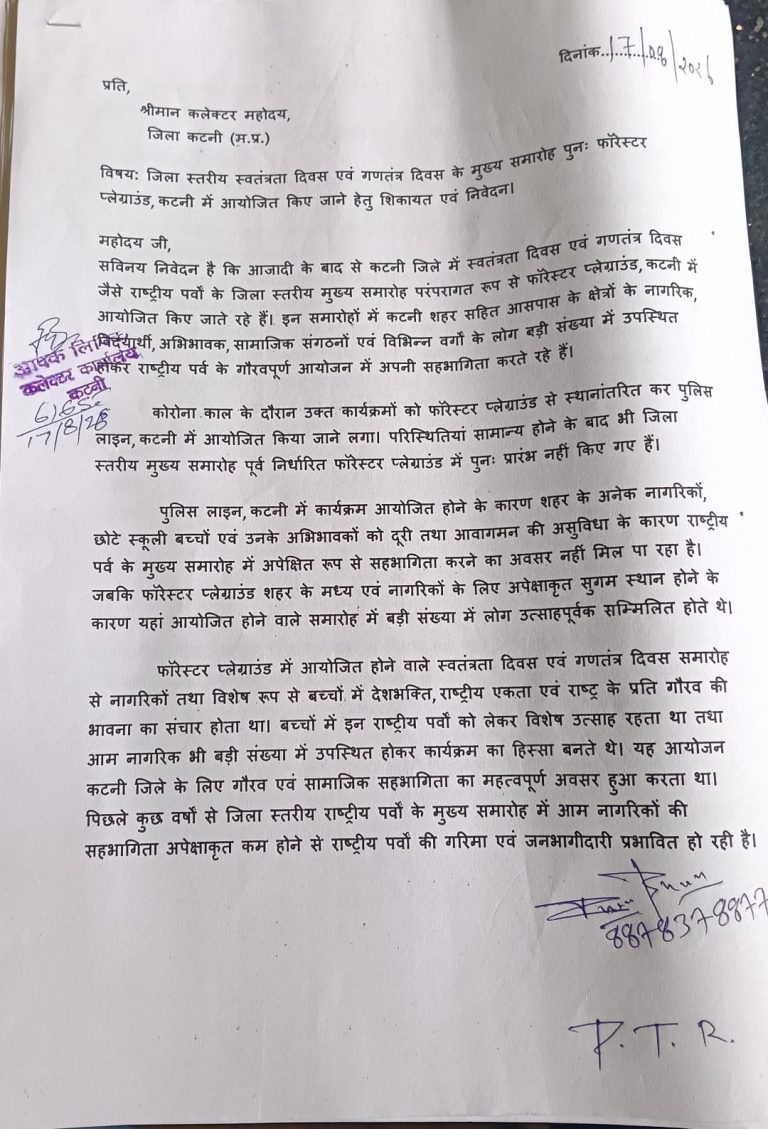 दिनांक..17/08/2026
प्रति,
श्रीमान कलेक्टर महोदय,
जिला कटनी (म.प्र.)
विषय: जिला स्तरीय स्वतंत्रता दिवस एवं गणतंत्र दिवस के मुख्य समारोह पुनः फॉरेस्टर
प्लेग्राउंड, कटनी में आयोजित किए जाने हेतु शिकायत एवं निवेदन।
महोदय जी,
सविनय निवेदन है कि आजादी के बाद से कटनी जिले में स्वतंत्रता दिवस एवं गणतंत्र दिवस
जैसे राष्ट्रीय पर्वों के जिला स्तरीय मुख्य समारोह परंपरागत रूप से फॉरेस्टर प्लेग्राउंड, कटनी में
आयोजित किए जाते रहे हैं। इन समारोहों में कटनी शहर सहित आसपास के क्षेत्रों के नागरिक,
विद्यार्थी, अभिभावक, सामाजिक संगठनों एवं विभिन्न वर्गों के लोग बड़ी संख्या में उपस्थित
होकर राष्ट्रीय पर्व के गौरवपूर्ण आयोजन में अपनी सहभागिता करते रहे हैं।
आवक लिपिक
कलेक्टर कार्यालय
कटनी
17/8/26
कोरोना काल के दौरान उक्त कार्यक्रमों को फॉरेस्टर प्लेग्राउंड से स्थानांतरित कर पुलिस
लाइन, कटनी में आयोजित किया जाने लगा। परिस्थितियां सामान्य होने के बाद भी जिला
स्तरीय मुख्य समारोह पूर्व निर्धारित फॉरेस्टर प्लेग्राउंड में पुनः प्रारंभ नहीं किए गए हैं।
पुलिस लाइन, कटनी में कार्यक्रम आयोजित होने के कारण शहर के अनेक नागरिकों,
छोटे स्कूली बच्चों एवं उनके अभिभावकों को दूरी तथा आवागमन की असुविधा के कारण राष्ट्रीय
पर्व के मुख्य समारोह में अपेक्षित रूप से सहभागिता करने का अवसर नहीं मिल पा रहा है।
जबकि फॉरेस्टर प्लेग्राउंड शहर के मध्य एवं नागरिकों के लिए अपेक्षाकृत सुगम स्थान होने के
कारण यहां आयोजित होने वाले समारोह में बड़ी संख्या में लोग उत्साहपूर्वक सम्मिलित होते थे।
फॉरेस्टर प्लेग्राउंड में आयोजित होने वाले स्वतंत्रता दिवस एवं गणतंत्र दिवस समारोह
से नागरिकों तथा विशेष रूप से बच्चों में देशभक्ति, राष्ट्रीय एकता एवं राष्ट्र के प्रति गौरव की
भावना का संचार होता था। बच्चों में इन राष्ट्रीय पर्वों को लेकर विशेष उत्साह रहता था तथा
आम नागरिक भी बड़ी संख्या में उपस्थित होकर कार्यक्रम का हिस्सा बनते थे। यह आयोजन
कटनी जिले के लिए गौरव एवं सामाजिक सहभागिता का महत्वपूर्ण अवसर हुआ करता था।
पिछले कुछ वर्षों से जिला स्तरीय राष्ट्रीय पर्वों के मुख्य समारोह में आम नागरिकों की
सहभागिता अपेक्षाकृत कम होने से राष्ट्रीय पर्वों की गरिमा एवं जनभागीदारी प्रभावित हो रही है।
8878378877
P. T. R.